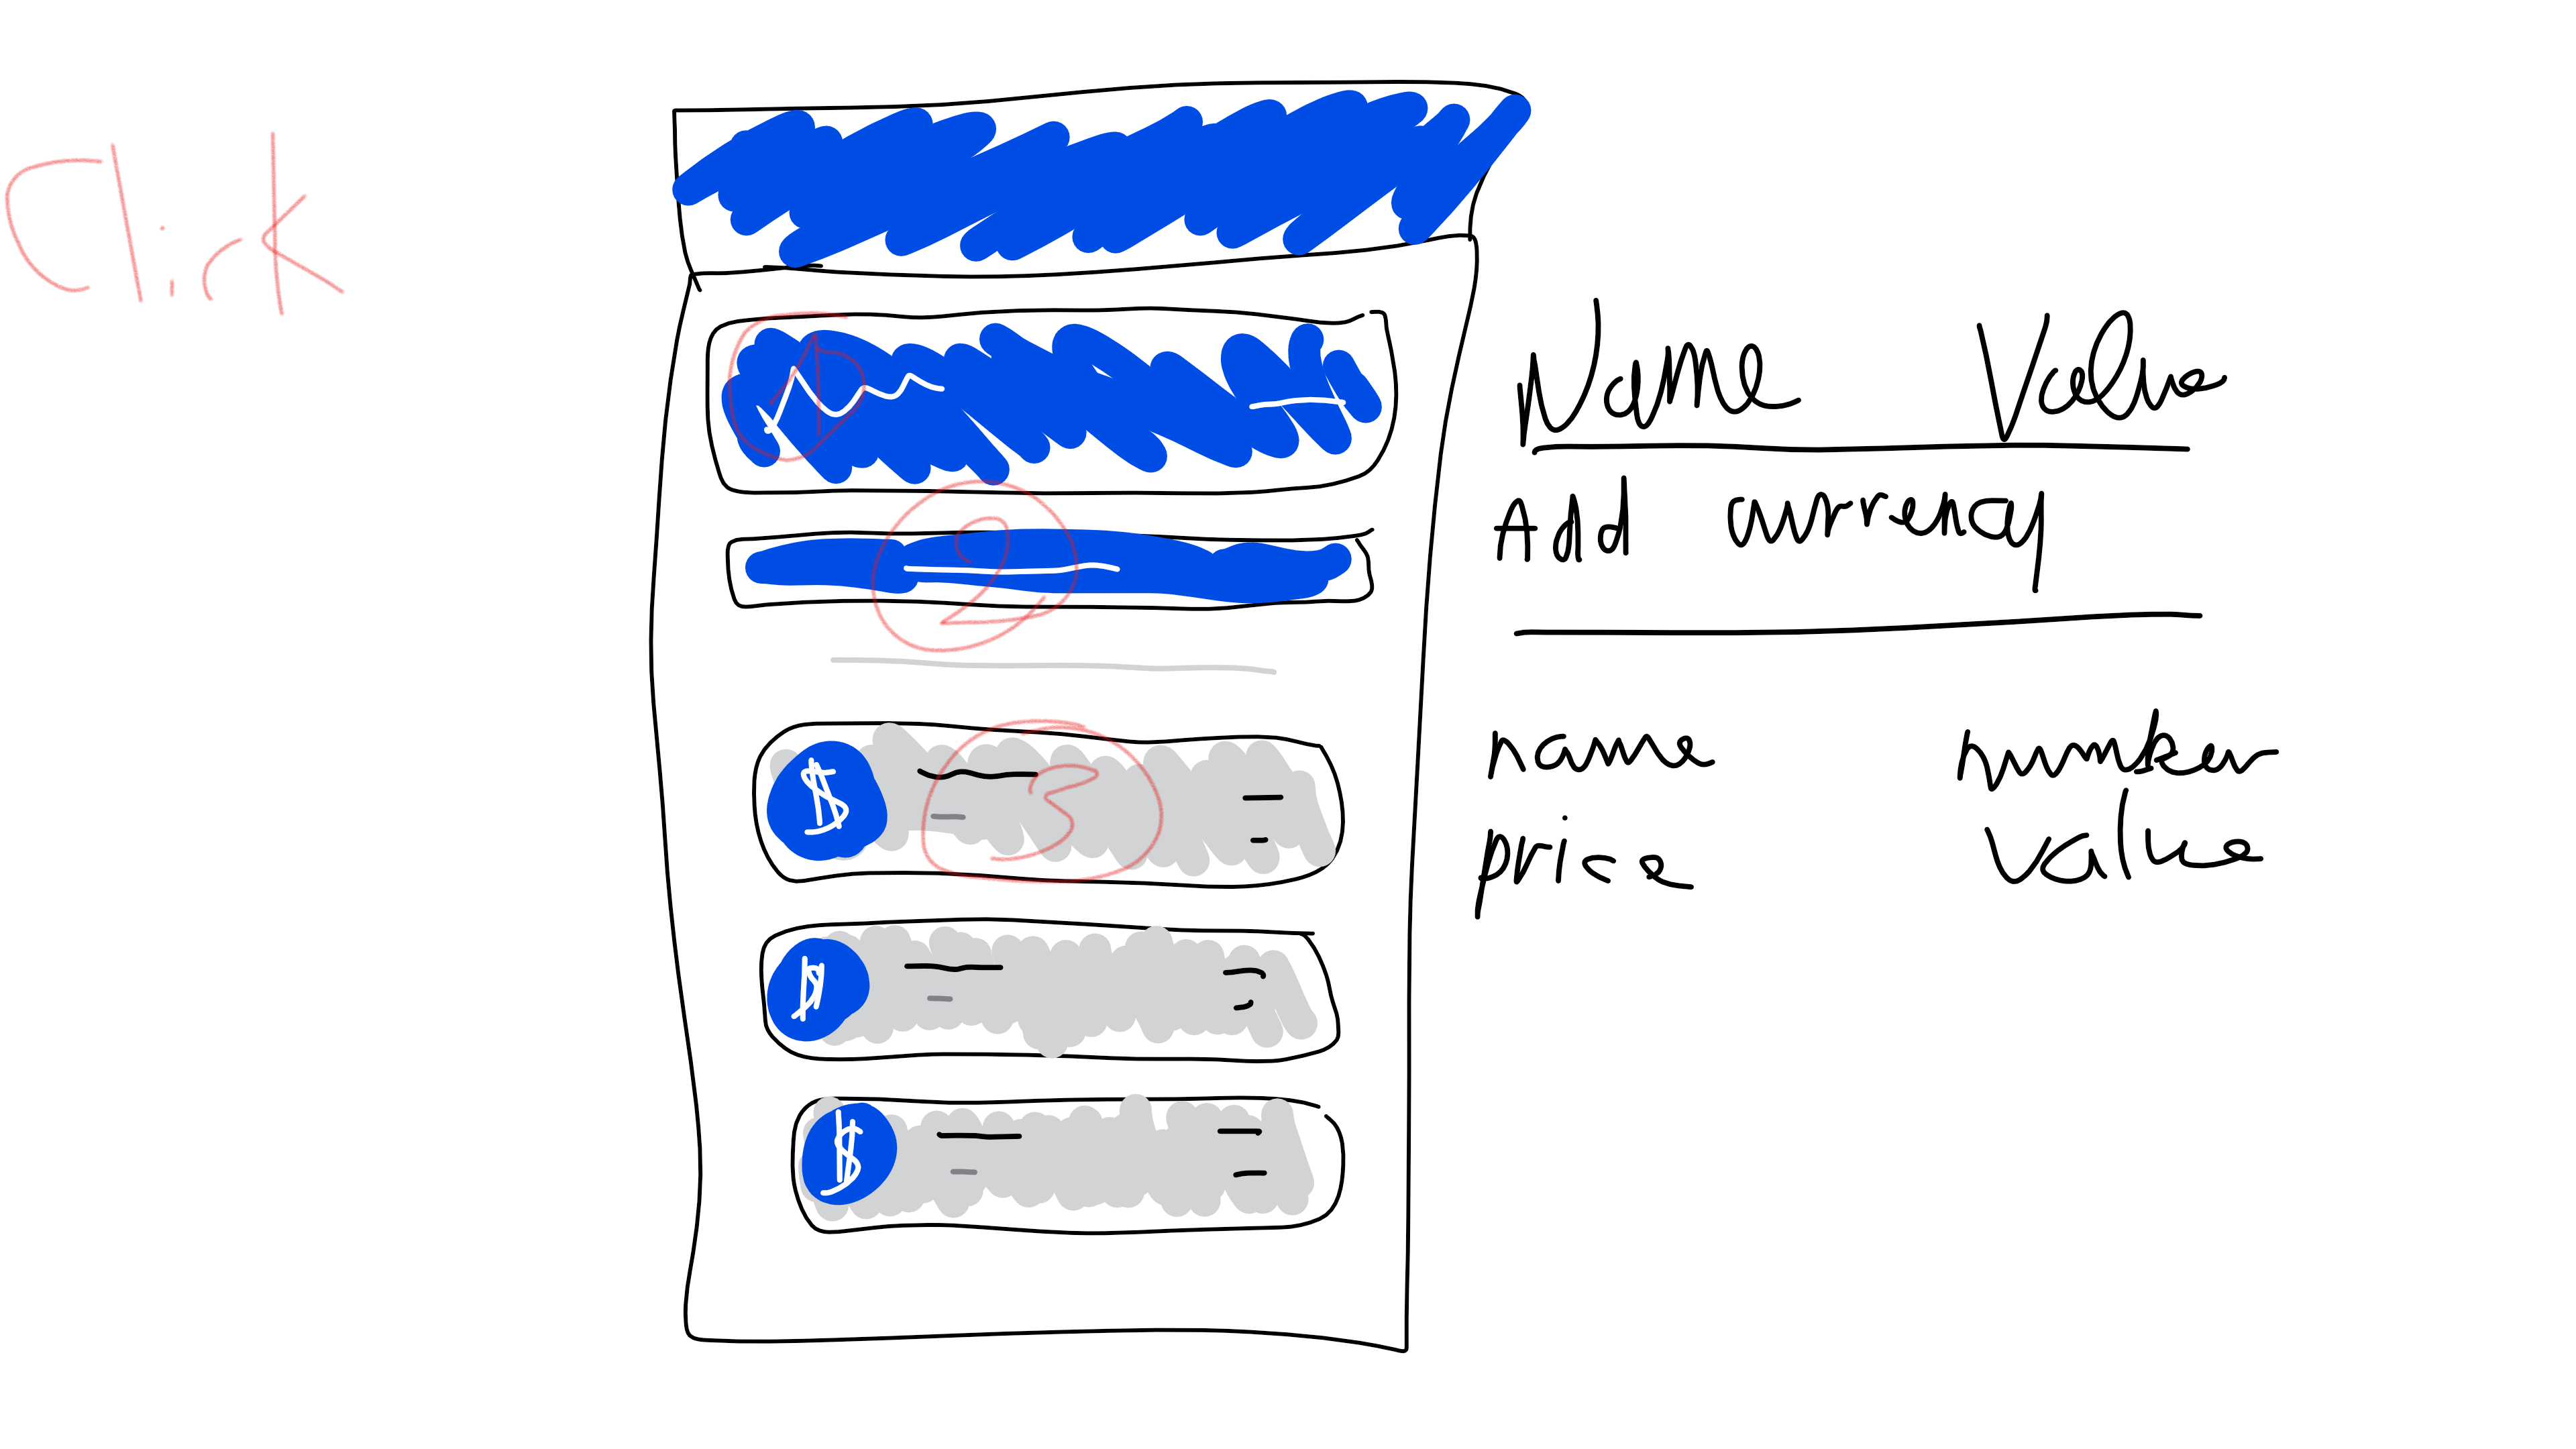 Click
1
Name Value
2
Add currency
$ 3 name number
price value
$
$